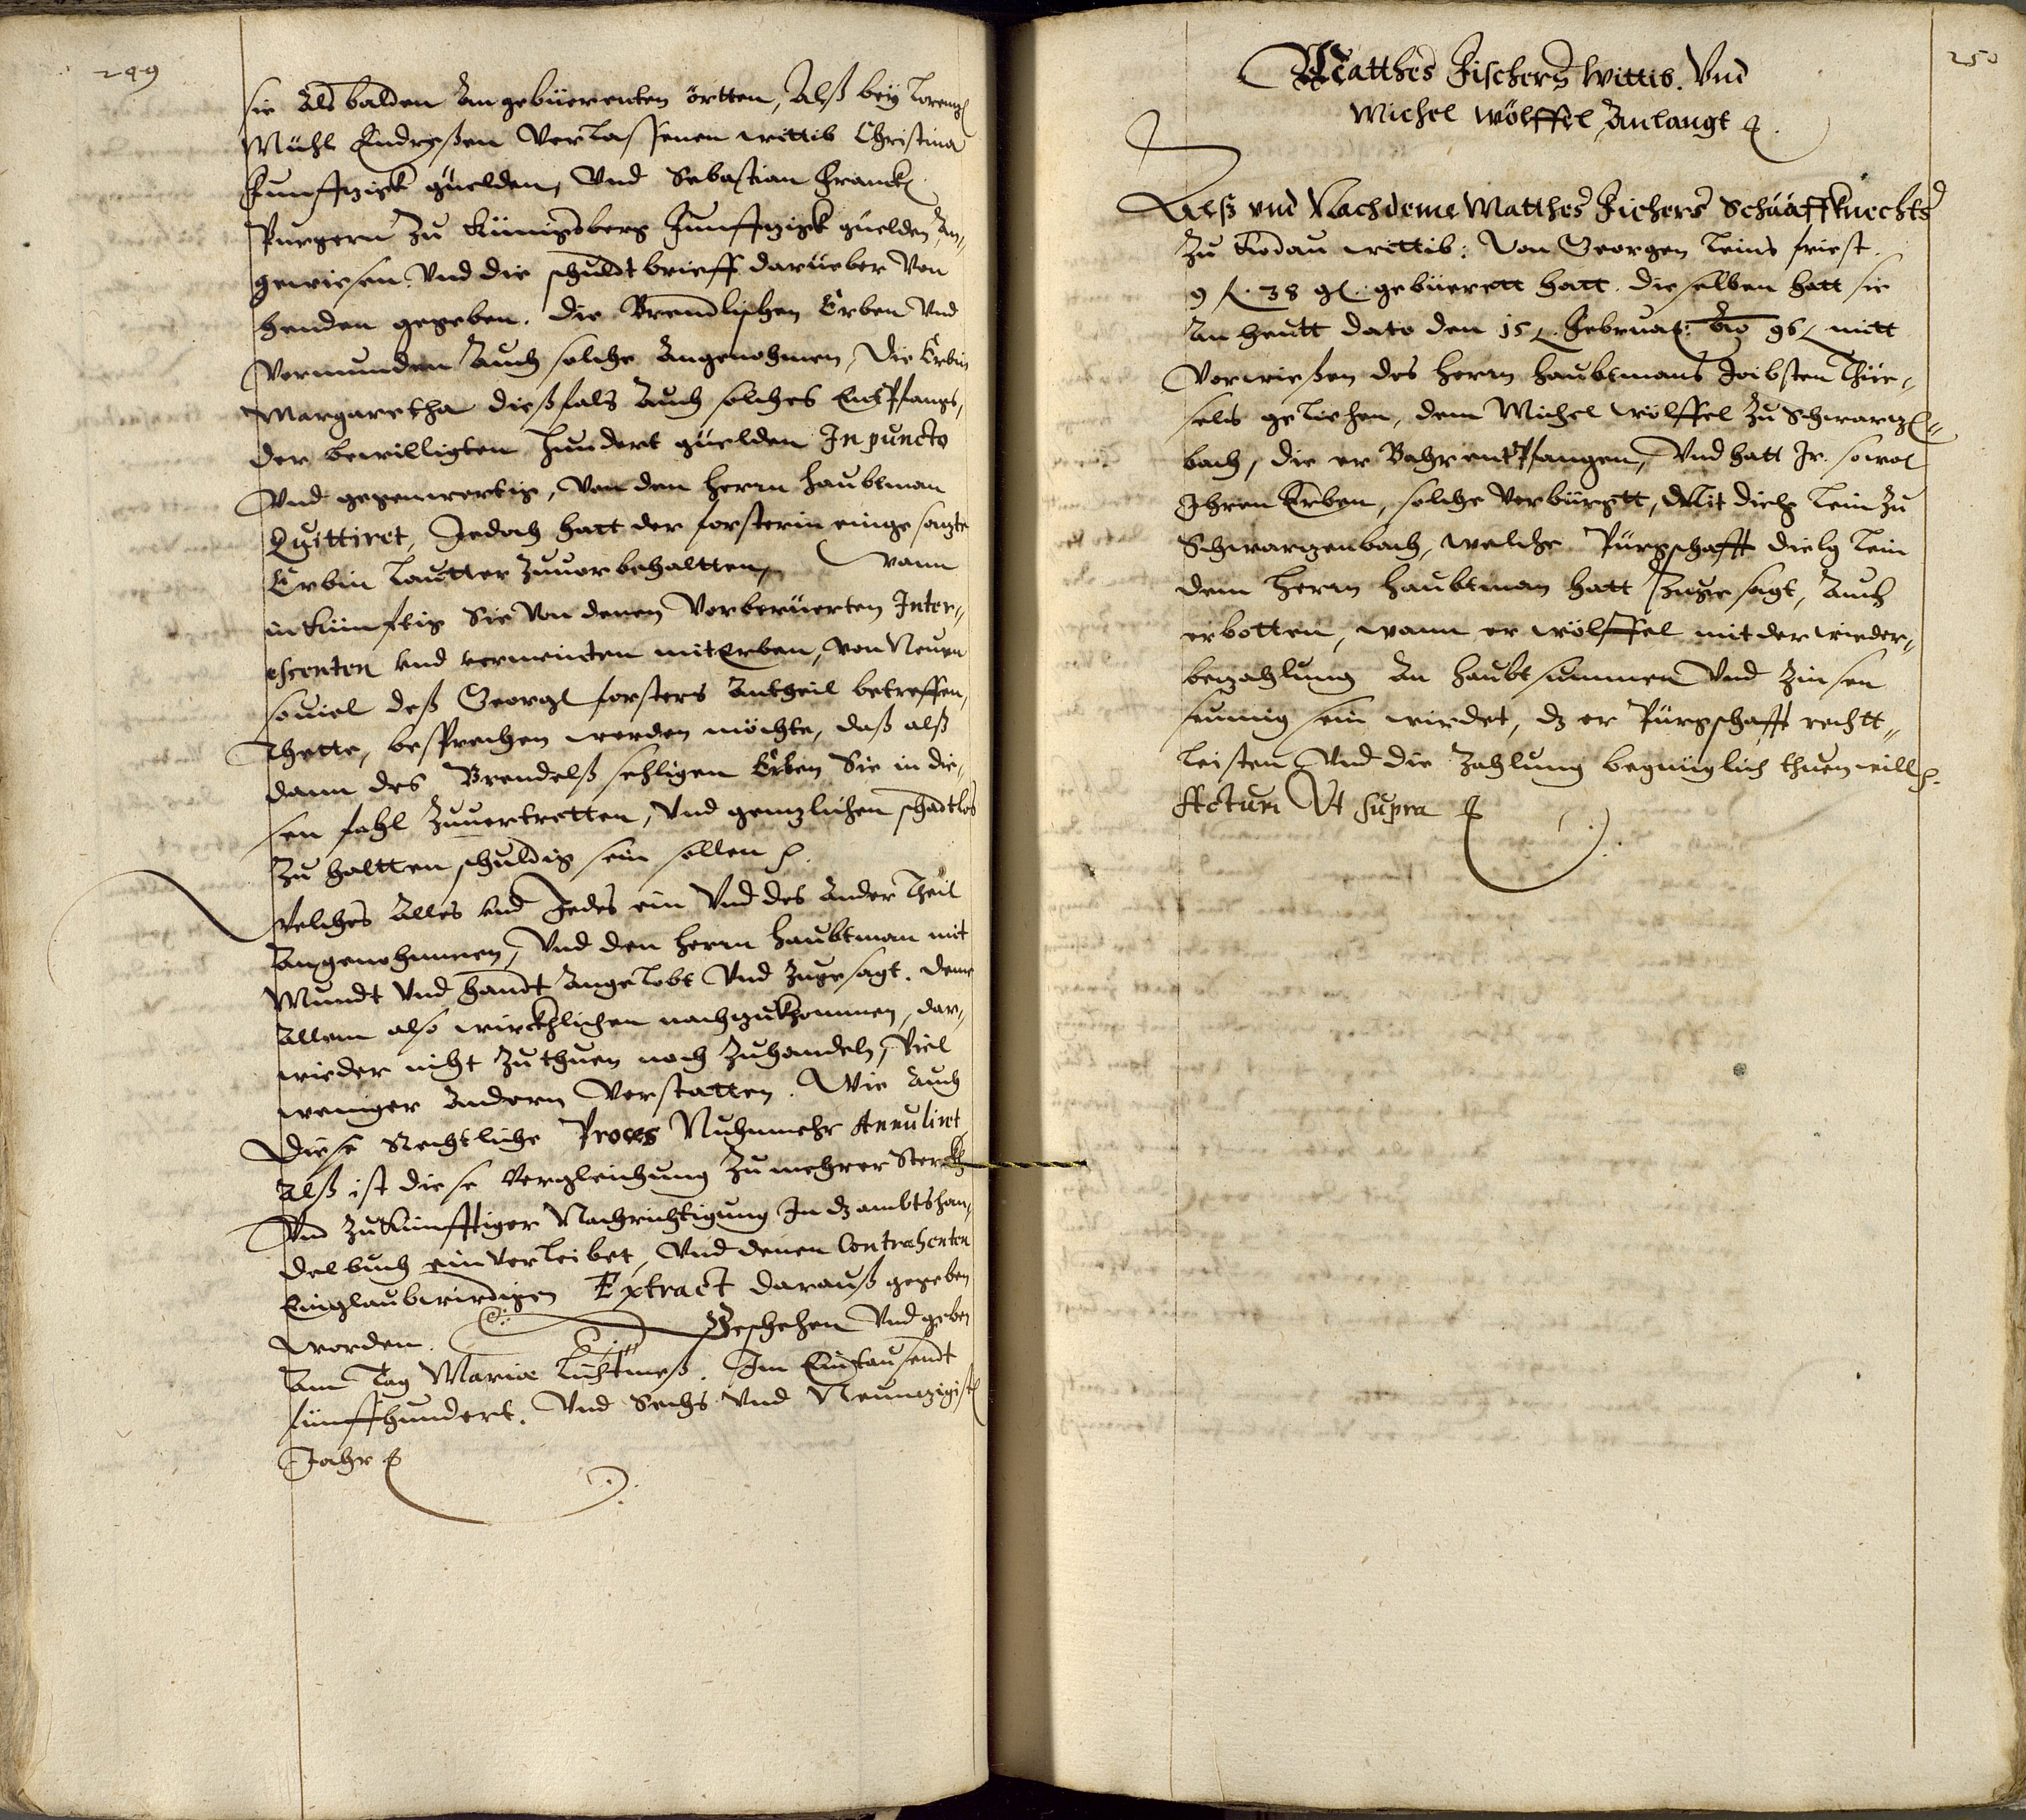 249
sie Als balden An gebüerenten örtten, Alß bey Lorentz
Mühl Endreßen Verlassenen wittib Christina
Funfftzigk guelden, Vnd Sebastian Franck
Purgern Zu Künigsberg Funfftzigk guelden An-
gewiesen. Vnd die schuldtbrieff darueber Von
henden gegeben. Die Brendlischen Erben Vnd
Vormunden Auch solche Angenohmen, Die Erbin
Margaretha dießfals Auch solches Entpfangs,
der bewilligten hundert guelden In puncto
Vnd gegenwertig, Von dem herrn haubtman
Quittiret, Jedoch hatt der forsterin einge satzte
Erbin lautter Zuuor behaltten, wann
in Künfftig Sie Von denen Vorberüerten Inter-
essenten vnd vermeinten mit Erben, von Neuen
souiel deß Georgl forsters Antheil betreffen,
Thette, besprechen werden möchte, daß alß
dann des Brendelß sehligen Erben Sie in die-
sen fahl Zuuertretten, Vnd gentzlichen schadtlos
Zu haltten schuldig sein sollen
Welches Alles vnd Jedes ein Vnd des Ander Theil
Angenohmmen, Vnd den herrn haubtman mit
Mundt Vnd handt Angelobt Vnd Zugesagt. Deme
Allem also wirckhlichen nachzukhommen, dar-
wieder nicht Zuthuen noch Zuhandeln, Viel
weniger Andern Verstatten. Wie Auch
Diese Rechtliche Proces Nuhnmehr Annuliret
Alß ist diese Vergleichung Zu mehrer Sterckh
Vnd Zukünfftiger Nachrichtigung In dz ambtshan-
delbuch ein Verleibet, Vnd denen Contrahenten
Einglaubwirdigen Extract darauß gegeben
worden. Geschehen Vnd geben
Am Tag Mariæ Lichtmeß. Im Eintausendt
fünffhundert. Vnd Sechs Vnd Neuntzigist
Jahr
250
Matthes Fischers Wittib. Vnd
Michel Wölffel Anlangt
Alß vnd Nachdeme Matthes Fichers Schaaffknechts
Zu Kodau wittib: Von Georgen Leins friest
9 fl. 38 gl. gebüerett hatt. Dieselben hatt sie
An heutt dato den 15 Februar: Ao 96 mitt
Vorwießen des herrn haubtmans Joibsten Thüe-
sels geliehen, dem Michel Wölffel Zu Schwartzen-
bach, die er Bahr entpfangen, Vnd hatt Jr. sowol
Ihren Erben, solche Verbürgtt, Mit Dietz Lein Zu
Schwartzenbach, welche Pürgschafft Dietz Lein
dem herrn haubtman hatt Zuge sagt, Auch
erbotten, wann er Wölffel mit der wieder-
bezahlung An haubt summen Vnd Zinsen
seumig sein wirdet, dz er Pürgschafft rechtt-
leisten Vnd die Zahlung begnüglich thuen will
Actum Vt Supra